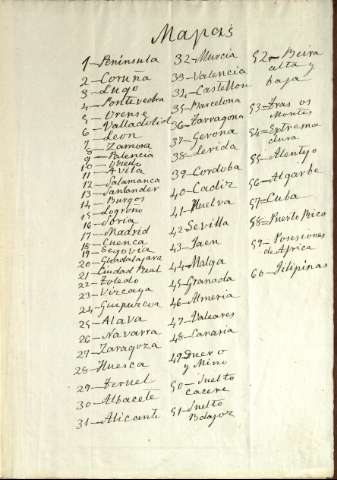 Mapas
1 — Peninsula
2 — Coruña
3 — Lugo
4 — Pontevedra
5 — Orense
6 — Valladolid
7 — Leon
8 — Zamora
9 — Palencia
10 — Oviedo
11 — Avila
12 — Salamanca
13 — Santander
14 — Burgos
15 — Logroño
16 — Soria
17 — Madrid
18 — Cuenca
19 — Segovia
20 — Guadalajara
21 — Ciudad Real
22 — Toledo
23 — Vizcaya
24 — Guipuzcoa
25 — Alava
26 — Navarra
27 — Zaragoza
28 — Huesca
29 — Teruel
30 — Albacete
31 — Alicante
32 — Murcia
33 — Valencia
34 — Castellon
35 — Barcelona
36 — Tarragona
37 — Gerona
38 — Lerida
39 — Cordoba
40 — Cadiz
41 — Huelva
42 — Sevilla
43 — Jaen
44 — Malga
45 — Granada
46 — Almeria
47 — Valeares
48 — Canaria
49 — Duero
y Miño
50 — Suelto
cacere
51 — Suelto
Badajoz
52 — Beira
alta y
baja
53 — Tras os
Montes
54 — Extrema
dura
55 — Alentejo
56 — Algarbe
57 — Cuba
58 — Puerto Rico
59 — Posesiones
de Africa
60 — Filipinas